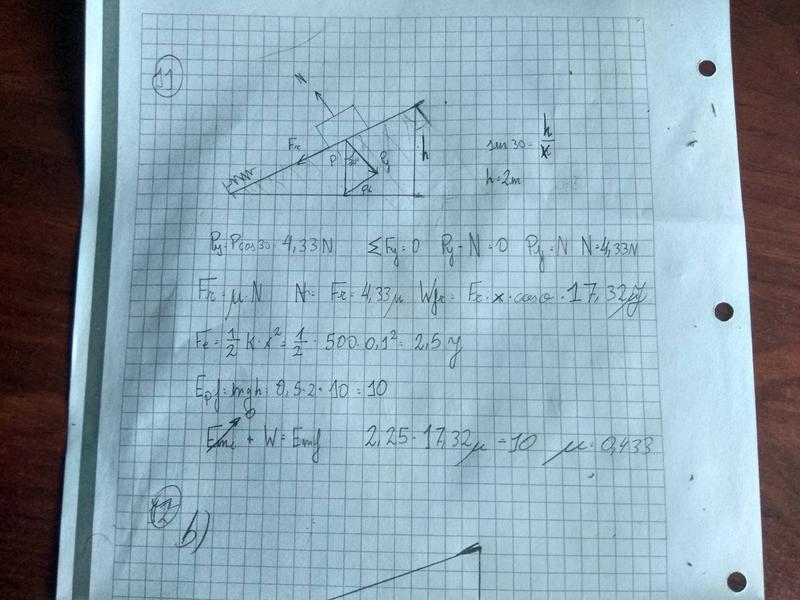 11
N
Fr
P
30
Py
Px
h
sen 30 = h/x
h = 2m
Py = P cos 30 = 4,33 N ΣFy = 0 Py - N = 0 Py = N N = 4,33 N
Fr = μ · N Fr = 4,33 μ Wfr = Fr · x · cos 0 = 17,32 μ J
Fe = 1/2 K · x² = 1/2 · 500 · 0,1² = 2,5 J
Epf = mgh = 0,5 · 2 · 10 = 10
Emi 0 + W = Emf 2,25 - 17,32 μ = 10 μ = 0,433
12
b)